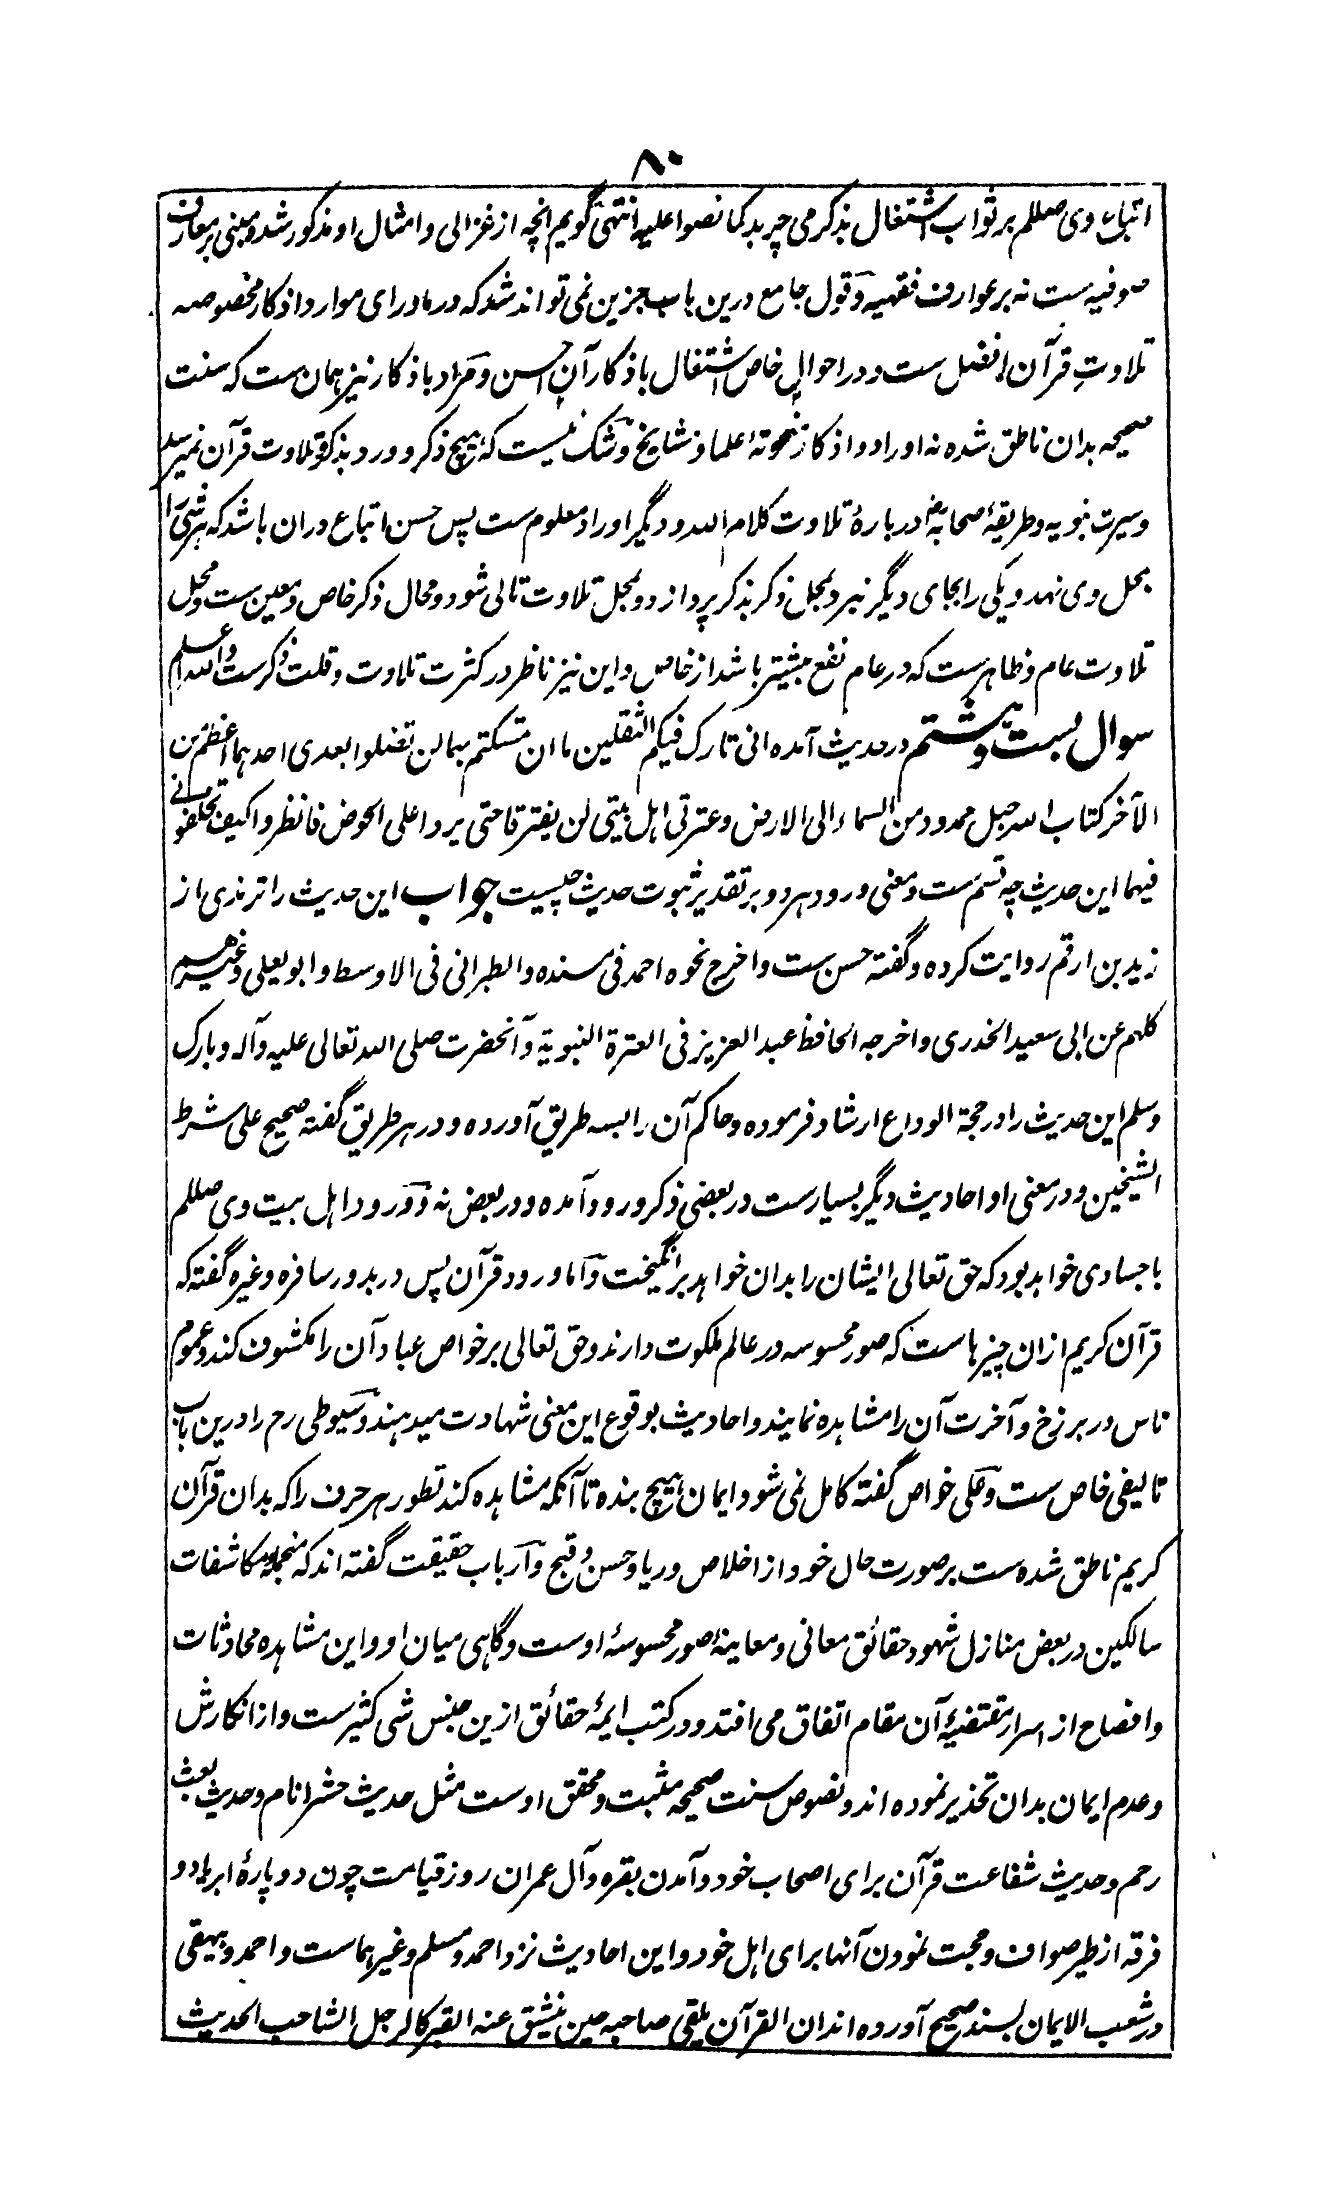 ۸۰
اتباع وی صللم بر ثواب اشتغال بذکر می چربد کما نصوا علیه انتهی گویم انچه از غزالی و امثال او مذکور شد و مبنی بر معارف
صوفیه ست نه بر عوارف فقهیه و قول جامع درین باب جزین نمی تواند شد که در ماورای موارد اذکار مخصوصه
تلاوتِ قرآن افضل ست و در احوالِ خاص اشتغال باذکار آن احسن و مراد باذکار نیز همان ست که سنت
صحیحه بدان ناطق شده نه اوراد و اذکار منحوتهٔ علما و مشایخ و شک نیست که هیچ ذکر و ورد بذکر و تلاوت قرآن نمیرسد
و سیرت نبویه و طریقهٔ صحابه رض دربارهٔ تلاوت کلام الله و دیگر اوراد معلوم ست پس حسن اتباع دران باشد که هر شی را
بمحل وی نهد و یکی را بجای دیگر نبرد بمحل ذکر بذکر پردازد و بمحل تلاوت تالی شود و محال ذکر خاص و معین ست و محل
تلاوت عام و ظاهر ست که در عام نفع بیشتر باشد از خاص و این نیز ناظر در کثرت تلاوت و قلت ذکر ست والله اعلم
سوال بست و هشتم در حدیث آمده انی تارک فیکم الثقلین ما ان تمسکتم بهما لن تضلوا بعدی احدهما اعظم من
الآخر کتاب الله حبل ممدود من السماء الی الارض و عترتی اهل بیتی لن یفترقا حتی یردا علی الحوض فانظروا کیف تخلفونی
فیهما این حدیث چه قسم ست و معنی ورود هر دو بر تقدیر ثبوت حدیث چیست جواب این حدیث را ترمذی از
زید بن ارقم روایت کرده و گفته حسن ست و اخرج نحوه احمد فی مسنده و الطبرانی فی الاوسط و ابو یعلی و غیرهم
کلهم عن ابی سعید الخدری و اخرجه الحافظ عبد العزیز فی العترة النبویة و آنحضرت صلی الله تعالی علیه و آله و بارک
وسلم این حدیث را در حجة الوداع ارشاد فرموده و حاکم آن را بسه طریق آورده و در هر طریق گفته صحیح علی شرط
الشیخین و در معنی او احادیث دیگر بسیار ست در بعضی ذکر ورود آمده و در بعض نه و ورود اهل بیت وی صللم
باجسادی خواهد بود که حق تعالی ایشان را بدان خواهد بر انگیخت و اما ورود قرآن پس در بدور سافره و غیره گفته که
قرآن کریم ازان چیزهاست که صور محسوسه در عالم ملکوت دارند و حق تعالی بر خواص عباد آن را مکشوف کند و عموم
ناس در برزخ و آخرت آن را مشاهده نمایند و احادیث بوقوع این معنی شهادت میدهند و سیوطی رح را درین باب
تالیفی خاص ست و علی خواص گفته کامل نمی شود ایمان هیچ بنده تا آنکه مشاهده کند تطور هر حرف را که بدان قرآن
کریم ناطق شده ست بر صورت حال خود از اخلاص و ریا و حسن و قبح و ارباب حقیقت گفته اند که منجمله مکاشفات
سالکین در بعض منازل شهود حقائق معانی و معاینهٔ صور محسوسهٔ اوست و گاهی میان او و این مشاهده محادثات
و افصاح از اسرار مقتضیهٔ آن مقام اتفاق می افتد و در کتب ایمهٔ حقائق ازین جنس شی کثیر ست و از انکارش
و عدم ایمان بدان تحذیر نموده اند و نصوص سنت صحیحه مثبت و محقق اوست مثل حدیث حشر انام و حدیث بعث
رحم و حدیث شفاعت قرآن برای اصحاب خود و آمدن بقره و آل عمران روز قیامت چون دو پارهٔ ابر یا دو
فرقه از طیر صواف و محبت نمودن آنها برای اهل خود و این احادیث نزد احمد و مسلم و غیرهماست و احمد و بیهقی
در شعب الایمان بسند صحیح آورده اند ان القرآن یلقی صاحبه حین ینشق عنه القبر کالرجل الشاحب الحدیث